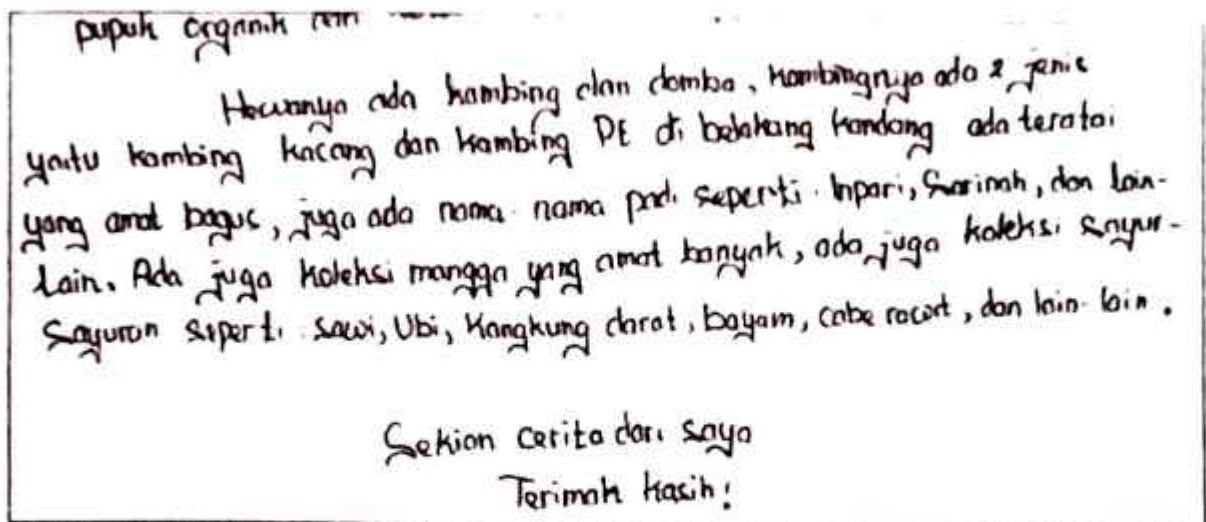 pupuk organik
Hewanya ada kambing dan domba, kambingnya ada 2 jenis
yaitu kambing kacang dan kambing PE di belakang kandang ada teratai
yang amat bagus, juga ada nama-nama padi seperti Inpari, Sarinah, dan lain-
lain. Ada juga koleksi mangga yang amat banyak, ada juga koleksi sayur-
sayuran seperti sawi, Ubi, Kangkung darat, bayam, cabe rawit, dan lain-lain.
Sekian cerita dari saya
Terimah kasih!